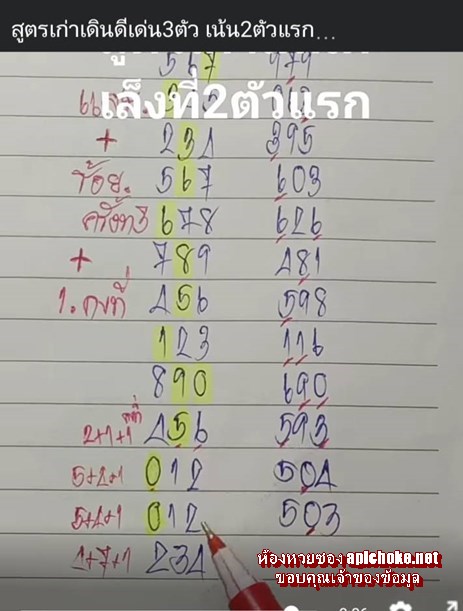 สูตรเก่าเดินดีเด่น3ตัว เน้น2ตัวแรก...
567 979
เล็งที่2ตัวแรก
+ 234 395
ร้อย. 567 603
ครั้งที่3 678 626
+ 789 481
1. คงที่ 456 598
123 116
890 690
2+1+1 456 593
5+2+1 012 504
5+4+1 012 503
4+7+1 234
ห้องหวยซอง apichoke.net
ขอบคุณเจ้าของข้อมูล